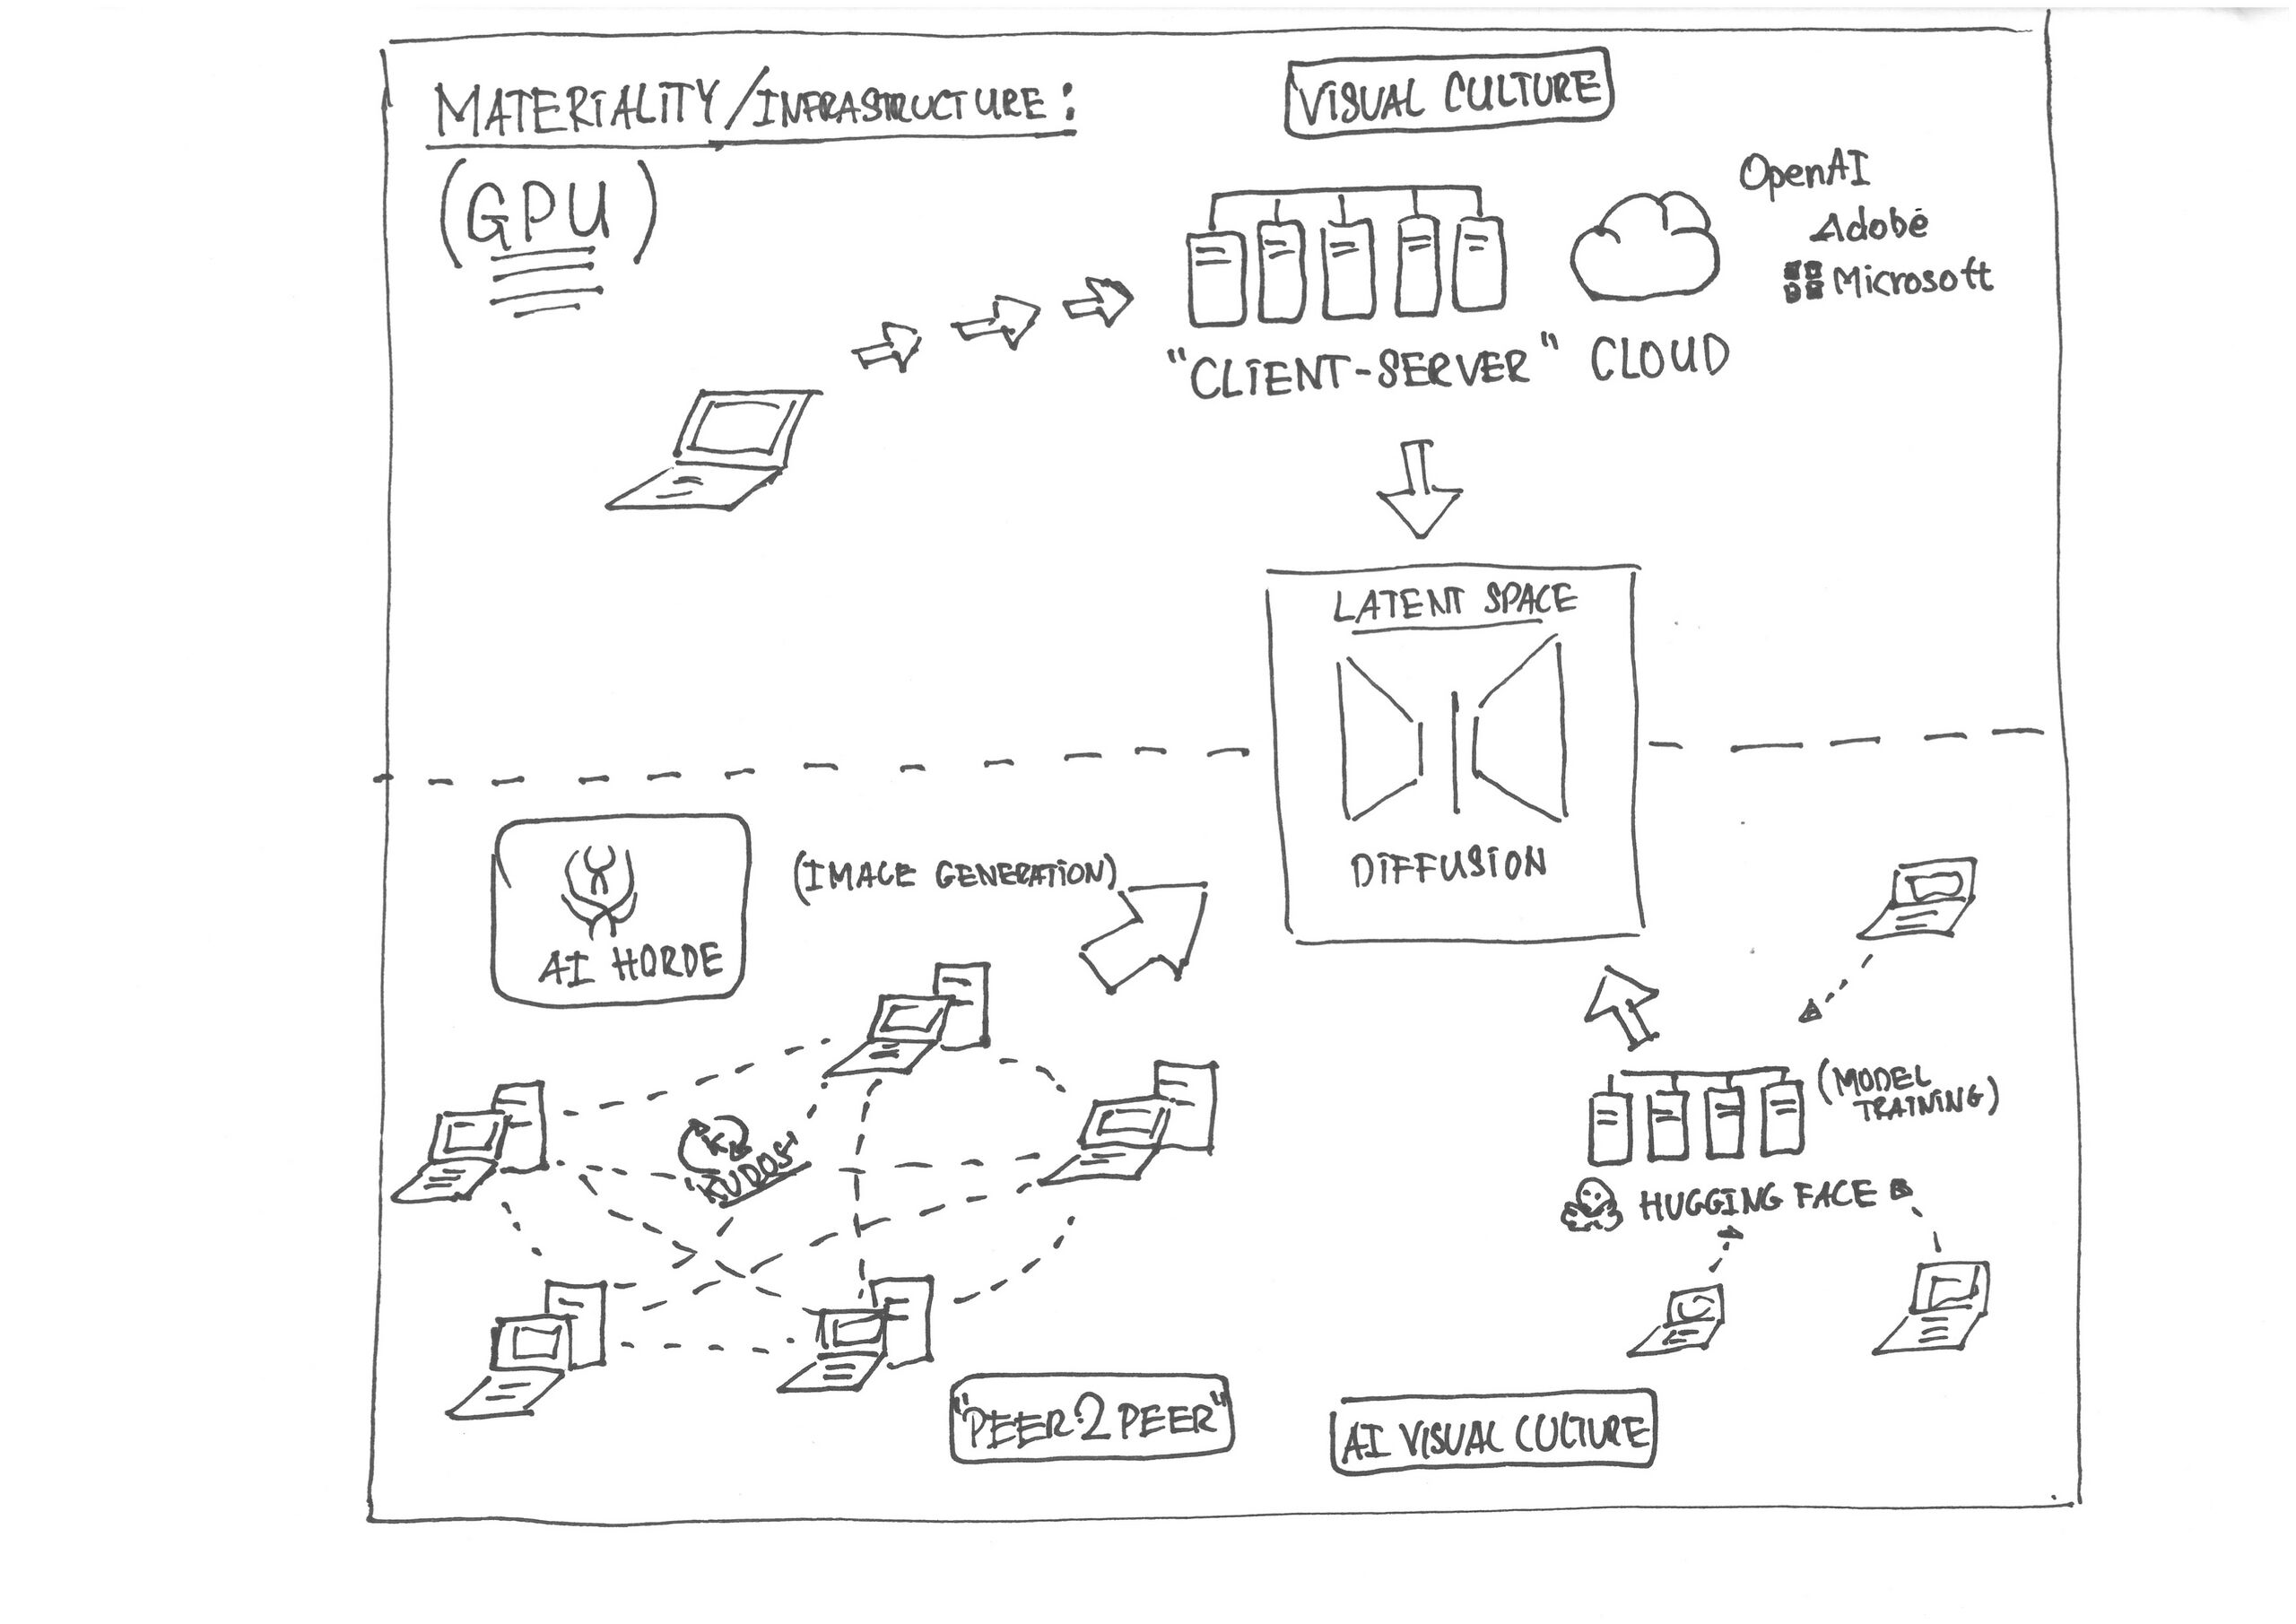 MATERIALITY/INFRASTRUCTURE:
(GPU)
VISUAL CULTURE
OpenAI
Adobe
Microsoft
"CLIENT-SERVER" CLOUD
LATENT SPACE
DIFFUSION
AI HORDE
(IMAGE GENERATION)
K
"KUDOS"
(MODEL
TRAINING)
HUGGING FACE
"PEER2PEER"
AI VISUAL CULTURE